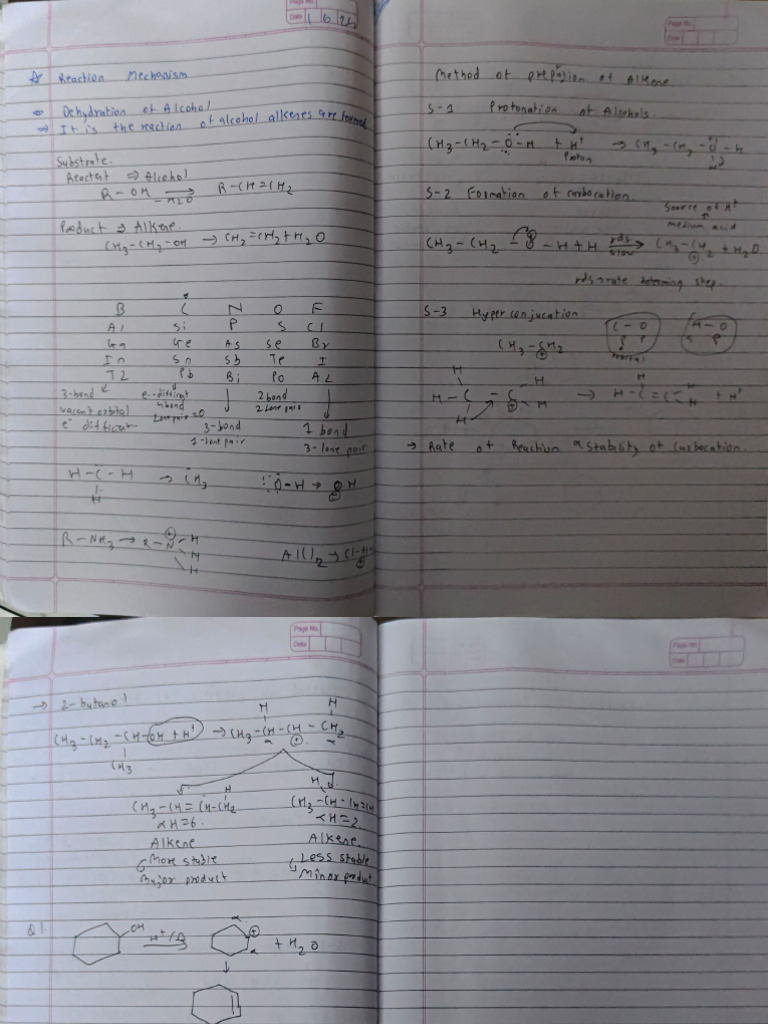 Page No.
Date 1 6 26
☆ Reaction Mechanism
Dehydration of Alcohol
⇒ It is the reaction of alcohol alkenes are formed
Substrate.
Reactent ⇒ Alcohol
R-OH → R-CH=CH2
-H2O
Product ⇒ Alkene.
CH3-CH2-OH → CH2=CH2+H2O
B C N O F
Al Si P S Cl
Ga Ge As Se Br
In Sn Sb Te I
TL Pb Bi Po
3-bond
vacant orbital
e- difficent
e- difficent
4 bond
Lone pair=0
3-bond
1-lone pair
2 bond
2 Lone pair
1 bond
3-lone pair
H-C-H → CH3
H
O-H → OH
R-NH3 → R-N-H
H
H
Page No.
Date
Method of
of Alkene
S-1 Protonation of Alcohols.
CH3-CH2-O-H + H+ → CH3-CH2-O-H
Proton
S-2 Formation of carbocation.
Source of H+
medium acid
CH3-CH2 - O -H+H rds → CH3-CH2 + H2O
slow
rds→rate determing step.
S-3 Hyperconjucation
C-O H-O
P P S P
CH3-CH2
H H
H-C-C → H-C=C + H+
H H
→ Rate of Reaction ∝ Stability of Carbocation.
Page No.
Date
→ 2-butanol
H H
CH3-CH2-CH-OH + H+ → CH3-CH-CH-CH2
CH3 α ⊕ α
H
CH3-CH=CH-CH2
αH=6.
Alkene
More stable
Major product
H
CH3-CH-CH=CH
αH=2
Alkene
Less stable
Minor product
Q1.
OH H+/Δ α ⊕ α + H2O
Page No.
Date